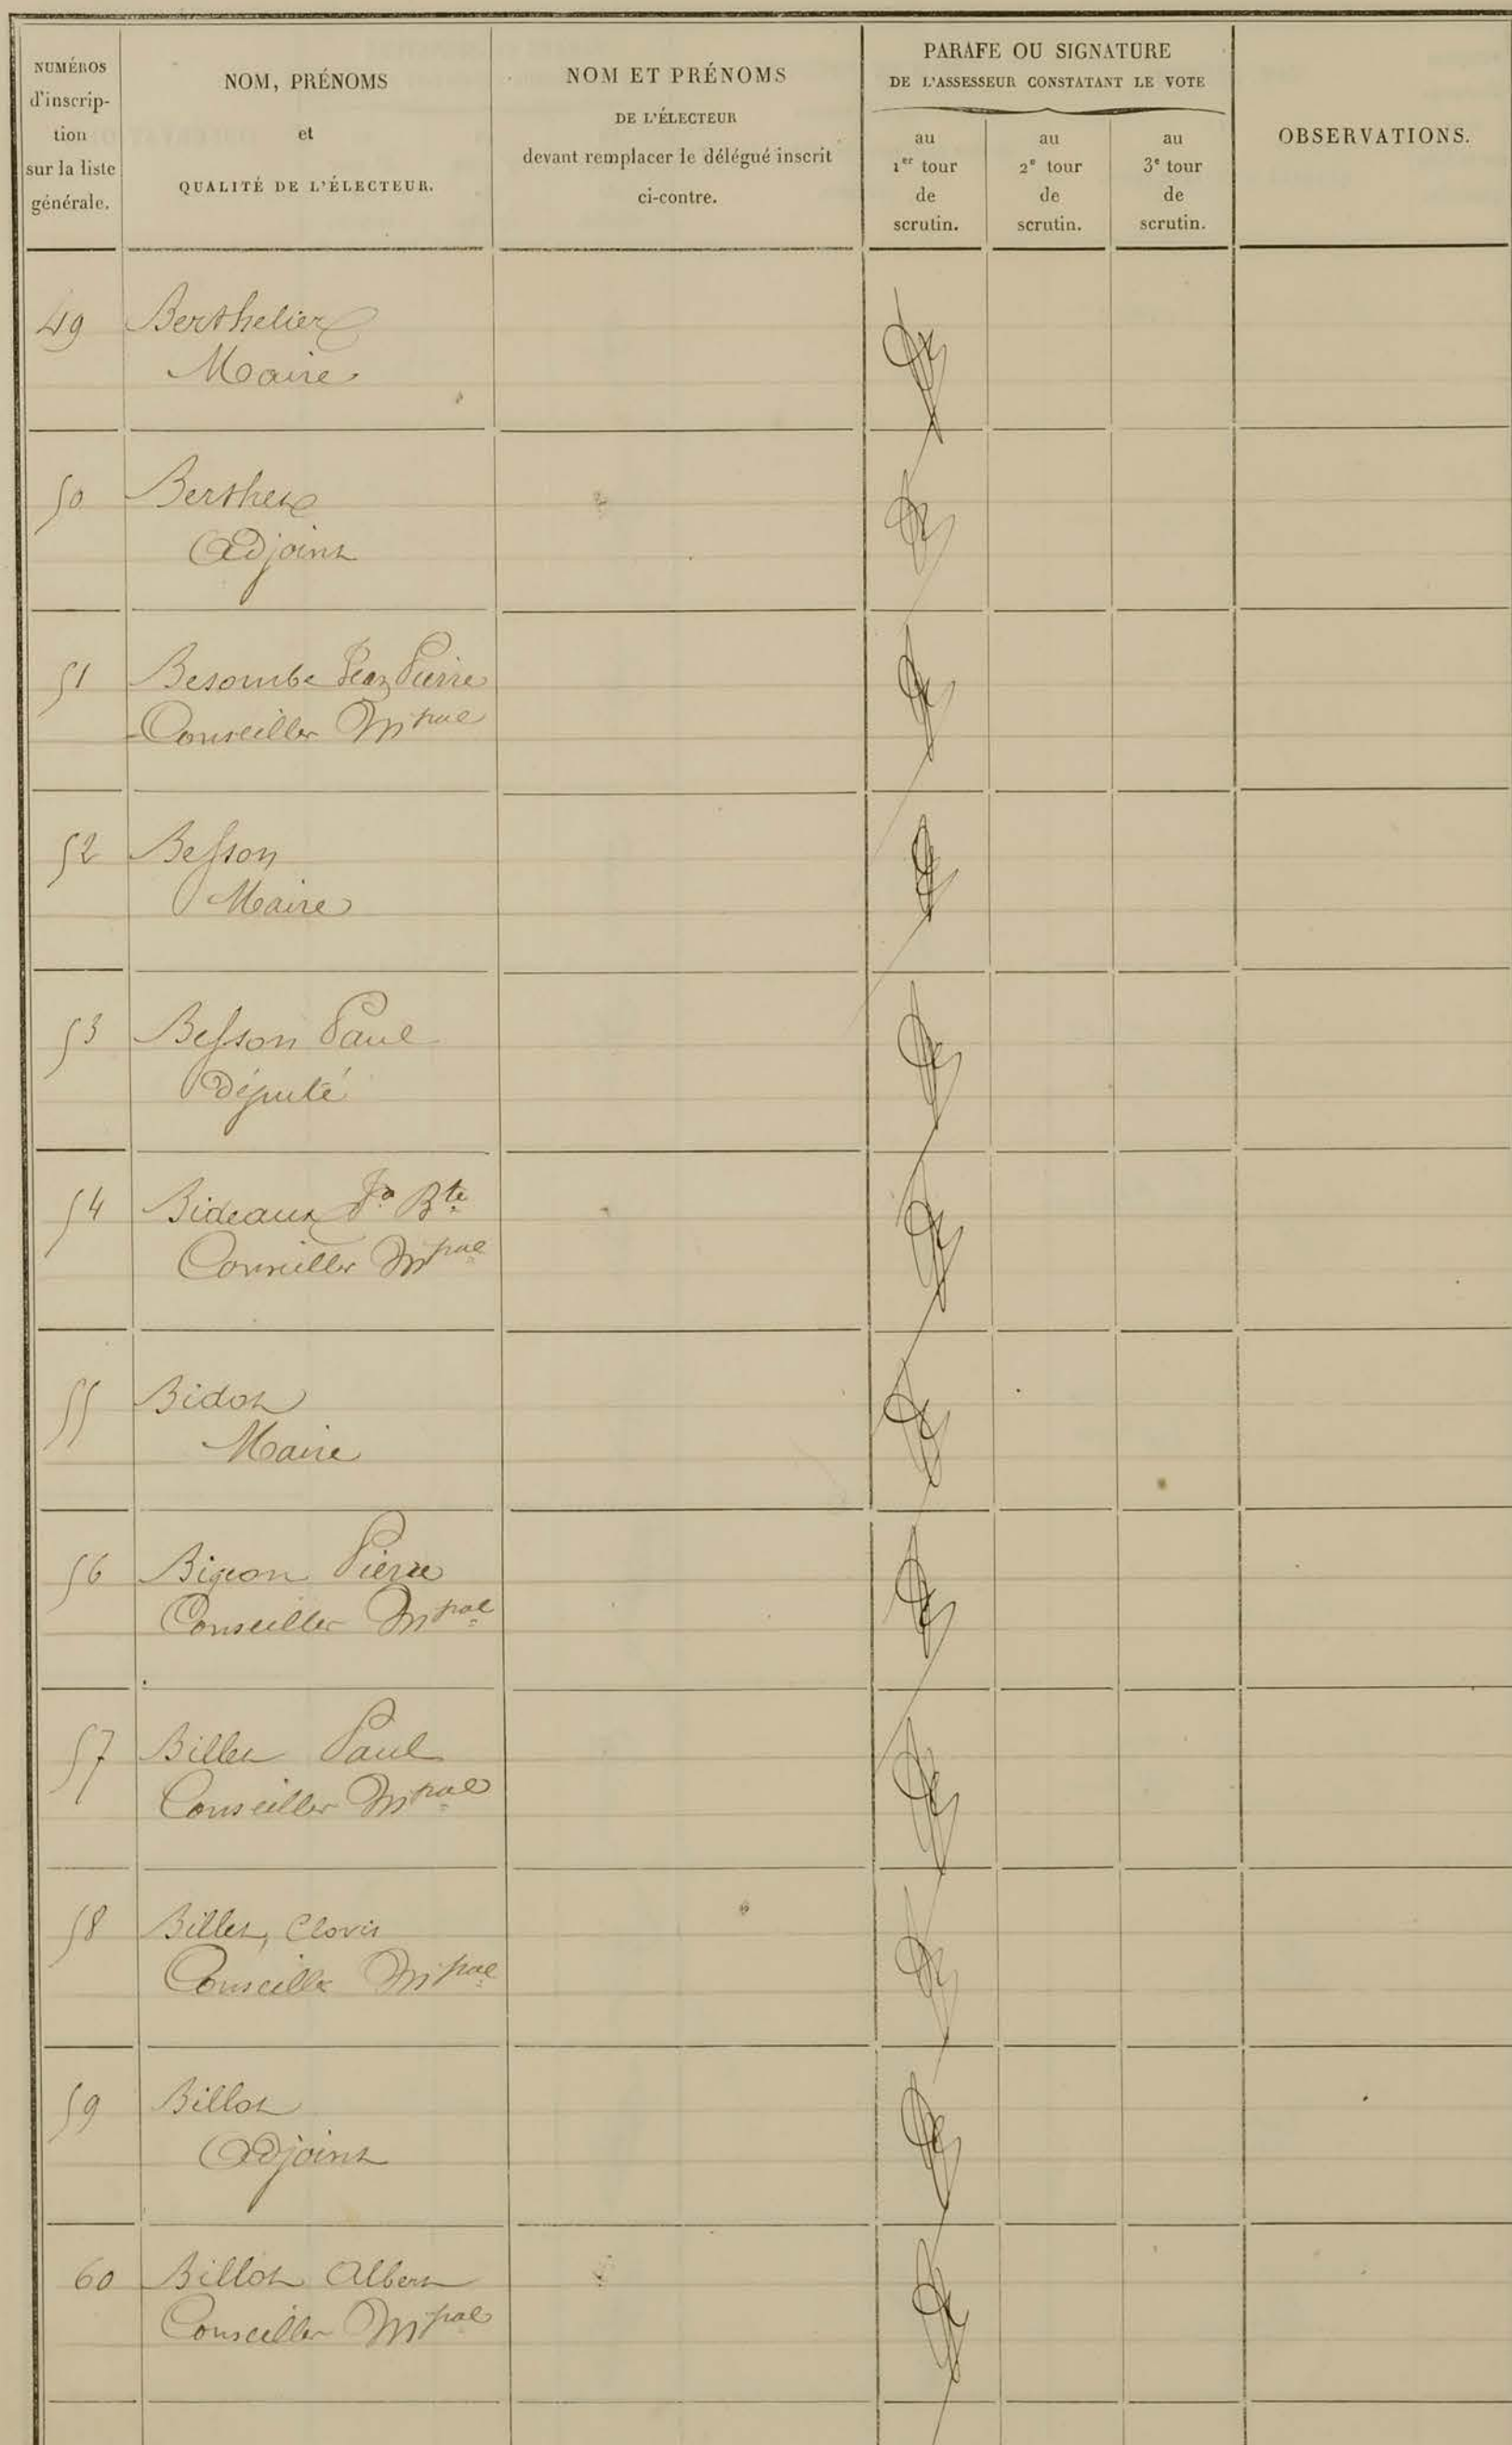 NUMÉROS
d'inscrip-
tion
sur la liste
générale.
NOM, PRÉNOMS
et
QUALITÉ DE L'ÉLECTEUR.
NOM ET PRÉNOMS
DE L'ÉLECTEUR
devant remplacer le délégué inscrit
ci-contre.
PARAFE OU SIGNATURE
DE L'ASSESSEUR CONSTATANT LE VOTE
au
1er tour
de
scrutin.
au
2e tour
de
scrutin.
au
3e tour
de
scrutin.
OBSERVATIONS.
49 Berthelier
Maire
50 Berthet
Adjoint
51 Besombe Jean Pierre
Conseiller Mpal
52 Besson
Maire
53 Besson Paul
Député
54 Bideaux Jn Bte
Conseiller Mpal
55 Bidot
Maire
56 Bigeon Pierre
Conseiller Mpal
57 Billet Paul
Conseiller Mpal
58 Billet, Clovis
Conseiller Mpal
59 Billot
Adjoint
60 Billot Albert
Conseiller Mpal